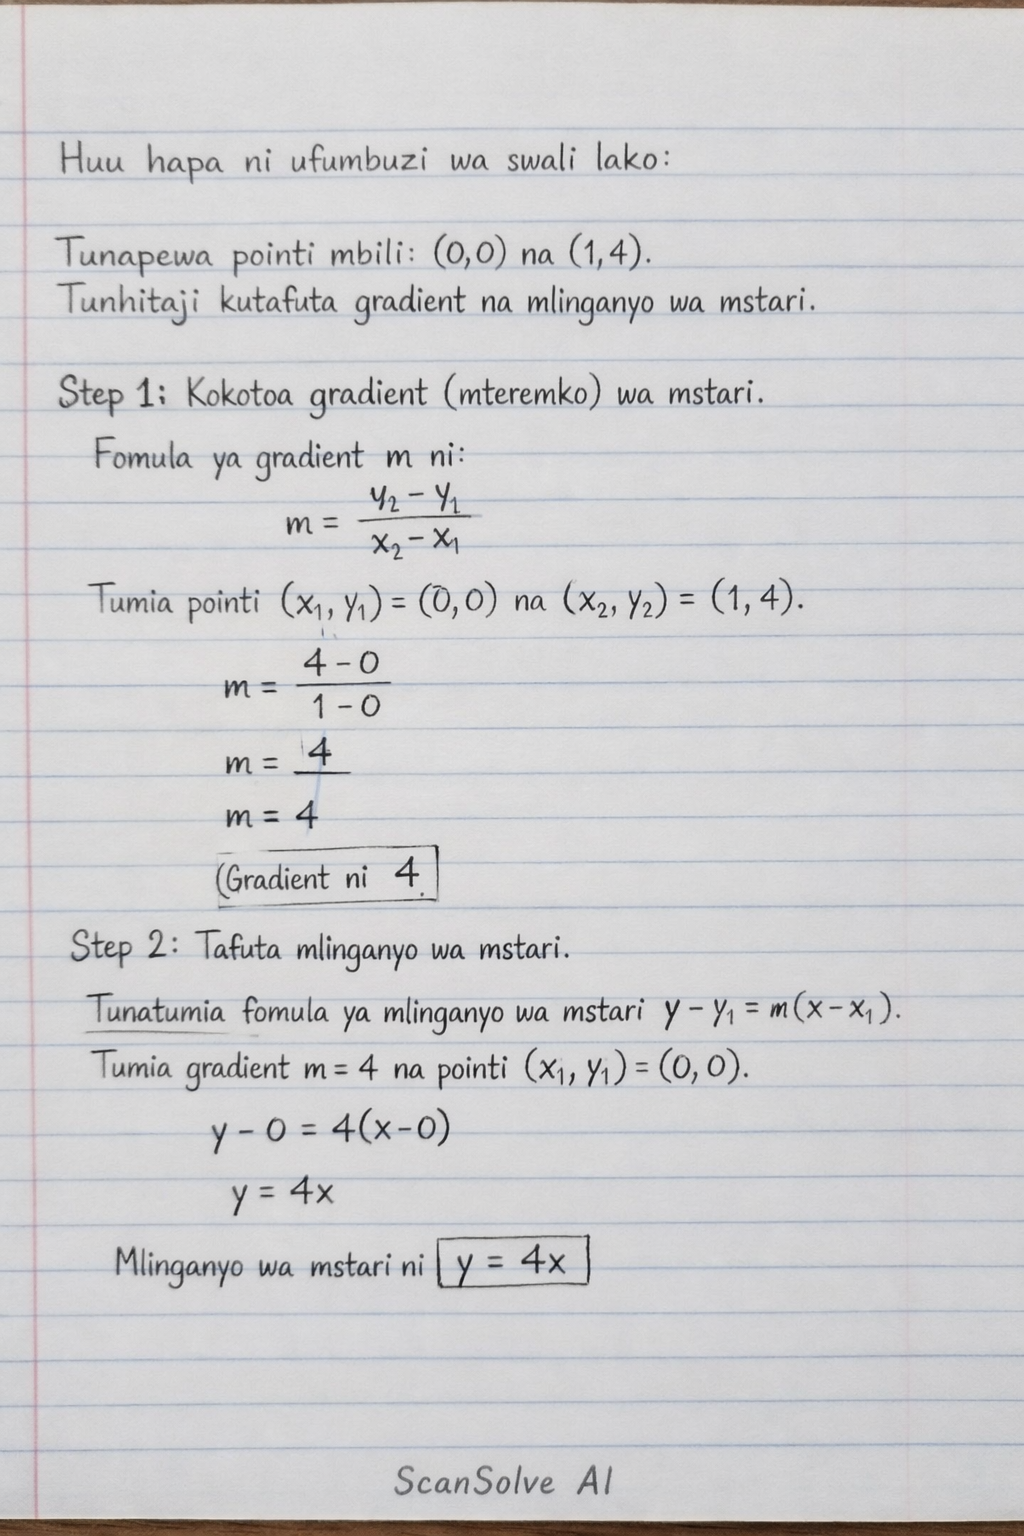 Huu hapa ni ufumbuzi wa swali lako:
Tunapewa pointi mbili: (0,0) na (1,4).
Tunhitaji kutafuta gradient na mlinganyo wa mstari.
Step 1: Kokotoa gradient (mteremko) wa mstari.
Fomula ya gradient m ni:
m = (y₂ - y₁) / (x₂ - x₁)
Tumia pointi (x₁, y₁) = (0,0) na (x₂, y₂) = (1,4).
m = (4 - 0) / (1 - 0)
m = 4
m = 4
(Gradient ni 4.
Step 2: Tafuta mlinganyo wa mstari.
Tunatumia fomula ya mlinganyo wa mstari y - y₁ = m(x-x₁).
Tumia gradient m = 4 na pointi (x₁, y₁) = (0,0).
y - 0 = 4(x-0)
y = 4x
Mlinganyo wa mstari ni y = 4x
ScanSolve AI